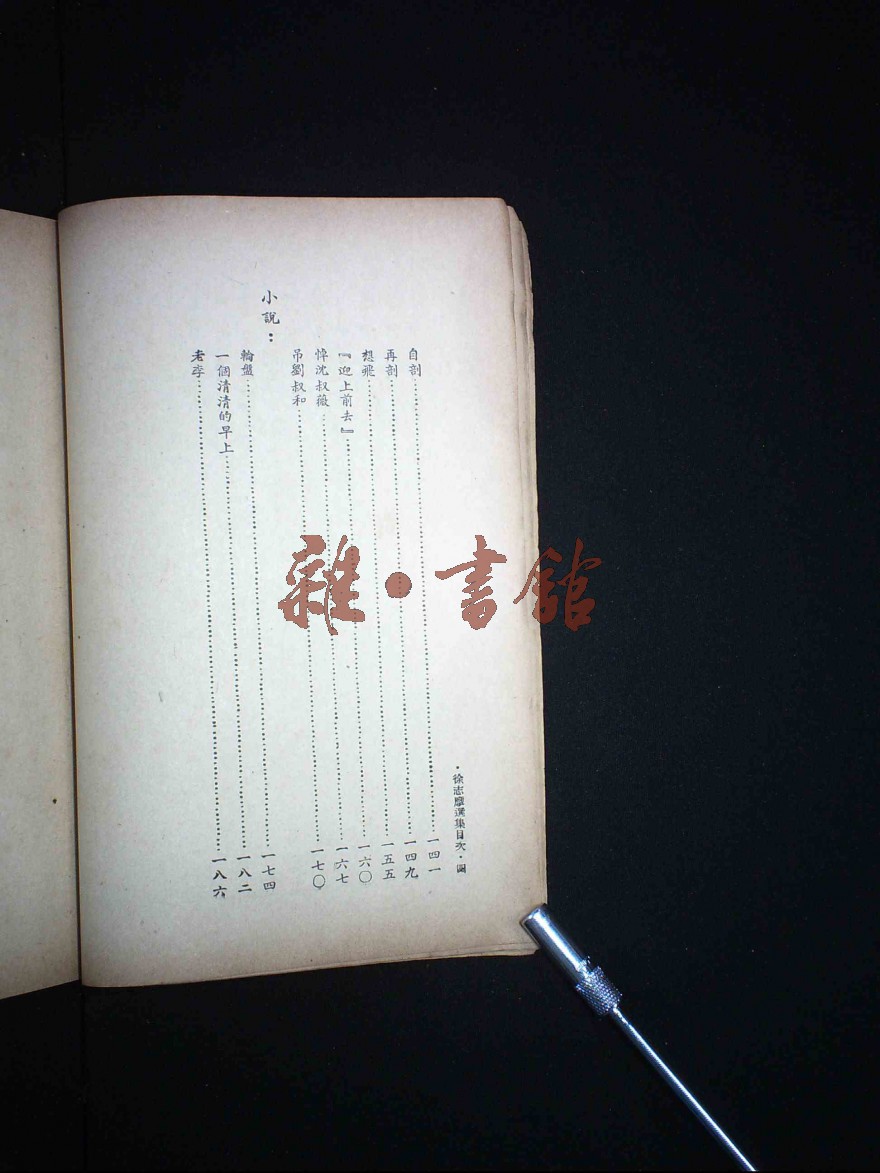 ・徐志摩選集目次・四
自剖……一四一
再剖……一四九
想飛……一五五
『迎上前去』……一六〇
悼沈叔薇……一六七
吊劉叔和……一七〇
小說：
輪盤……一七四
一個清清的早上……一八二
老李……一八六
雜・書館